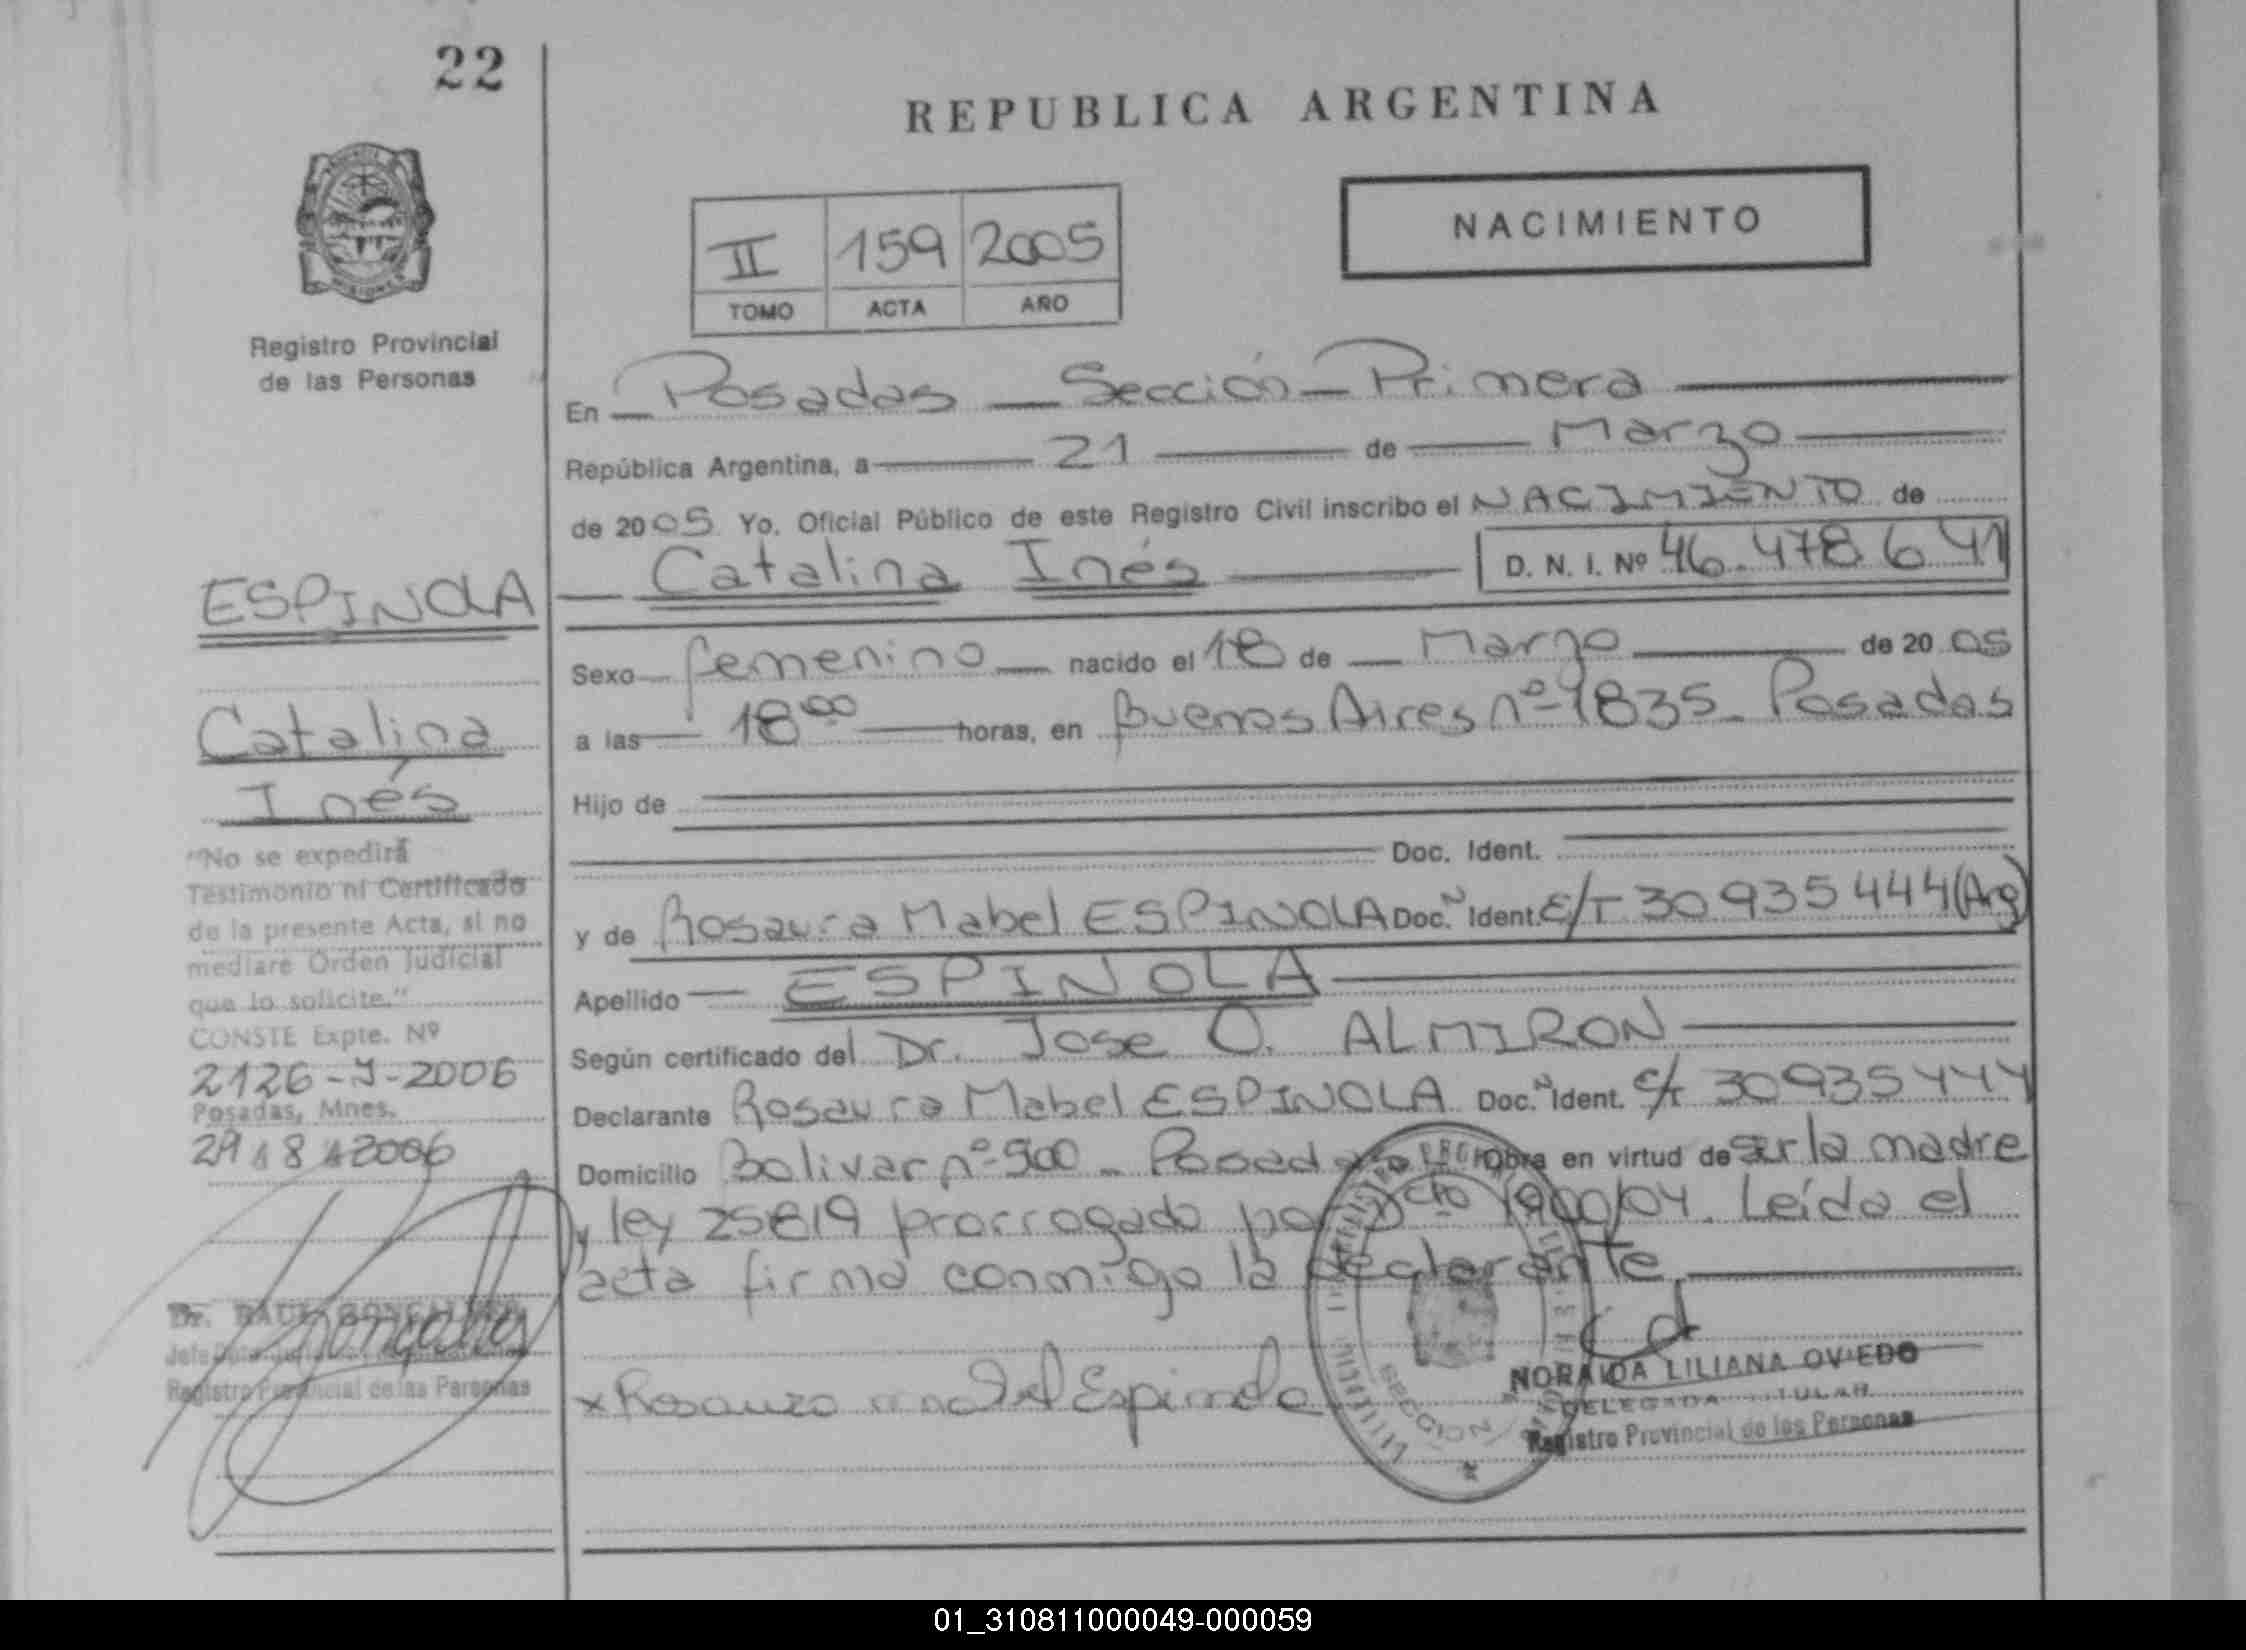 22
REPUBLICA ARGENTINA
NACIMIENTO
II 159 2005
TOMO ACTA AÑO
Registro Provincial
de las Personas
En Posadas Sección Primera
República Argentina, a 21 de Marzo
de 2005 Yo. Oficial Público de este Registro Civil inscribo el NACIMIENTO de
Catalina Inés D. N. I. Nº 46.478641
Sexo femenino nacido el 18 de Marzo de 2005
a las 18 00 horas, en Buenos Aires nº 1835 - Posadas
Hijo de
Doc. Ident.
y de Rosaura Mabel ESPINOLA Doc. N Ident. C/T 30935444 (Arg)
Apellido ESPINOLA
Según certificado del Dr. Jose O. ALMIRON
Declarante Rosaura Mabel ESPINOLA Doc. N Ident. C/T 30935444
Domicilio Bolivar nº 500 - Posadas Obra en virtud de ser la madre
y ley 25819 prorrogado por Dcto 1900/04. Leída el
acta firma conmigo la declarante
x Rosaura mabel Espinola
NORAIDA LILIANA OVIEDO
DELEGADA TITULAR
Registro Provincial de las Personas
SECCION
ESPINOLA
Catalina
Inés
"No se expedirá
Testimonio ni Certificado
de la presente Acta, si no
mediare Orden Judicial
que lo solicite."
CONSTE Expte. Nº
2126-J-2006
Posadas, Mnes.
29 8 2006
Dr. RAUL
Registro Provincial de las Personas
01_310811000049-000059